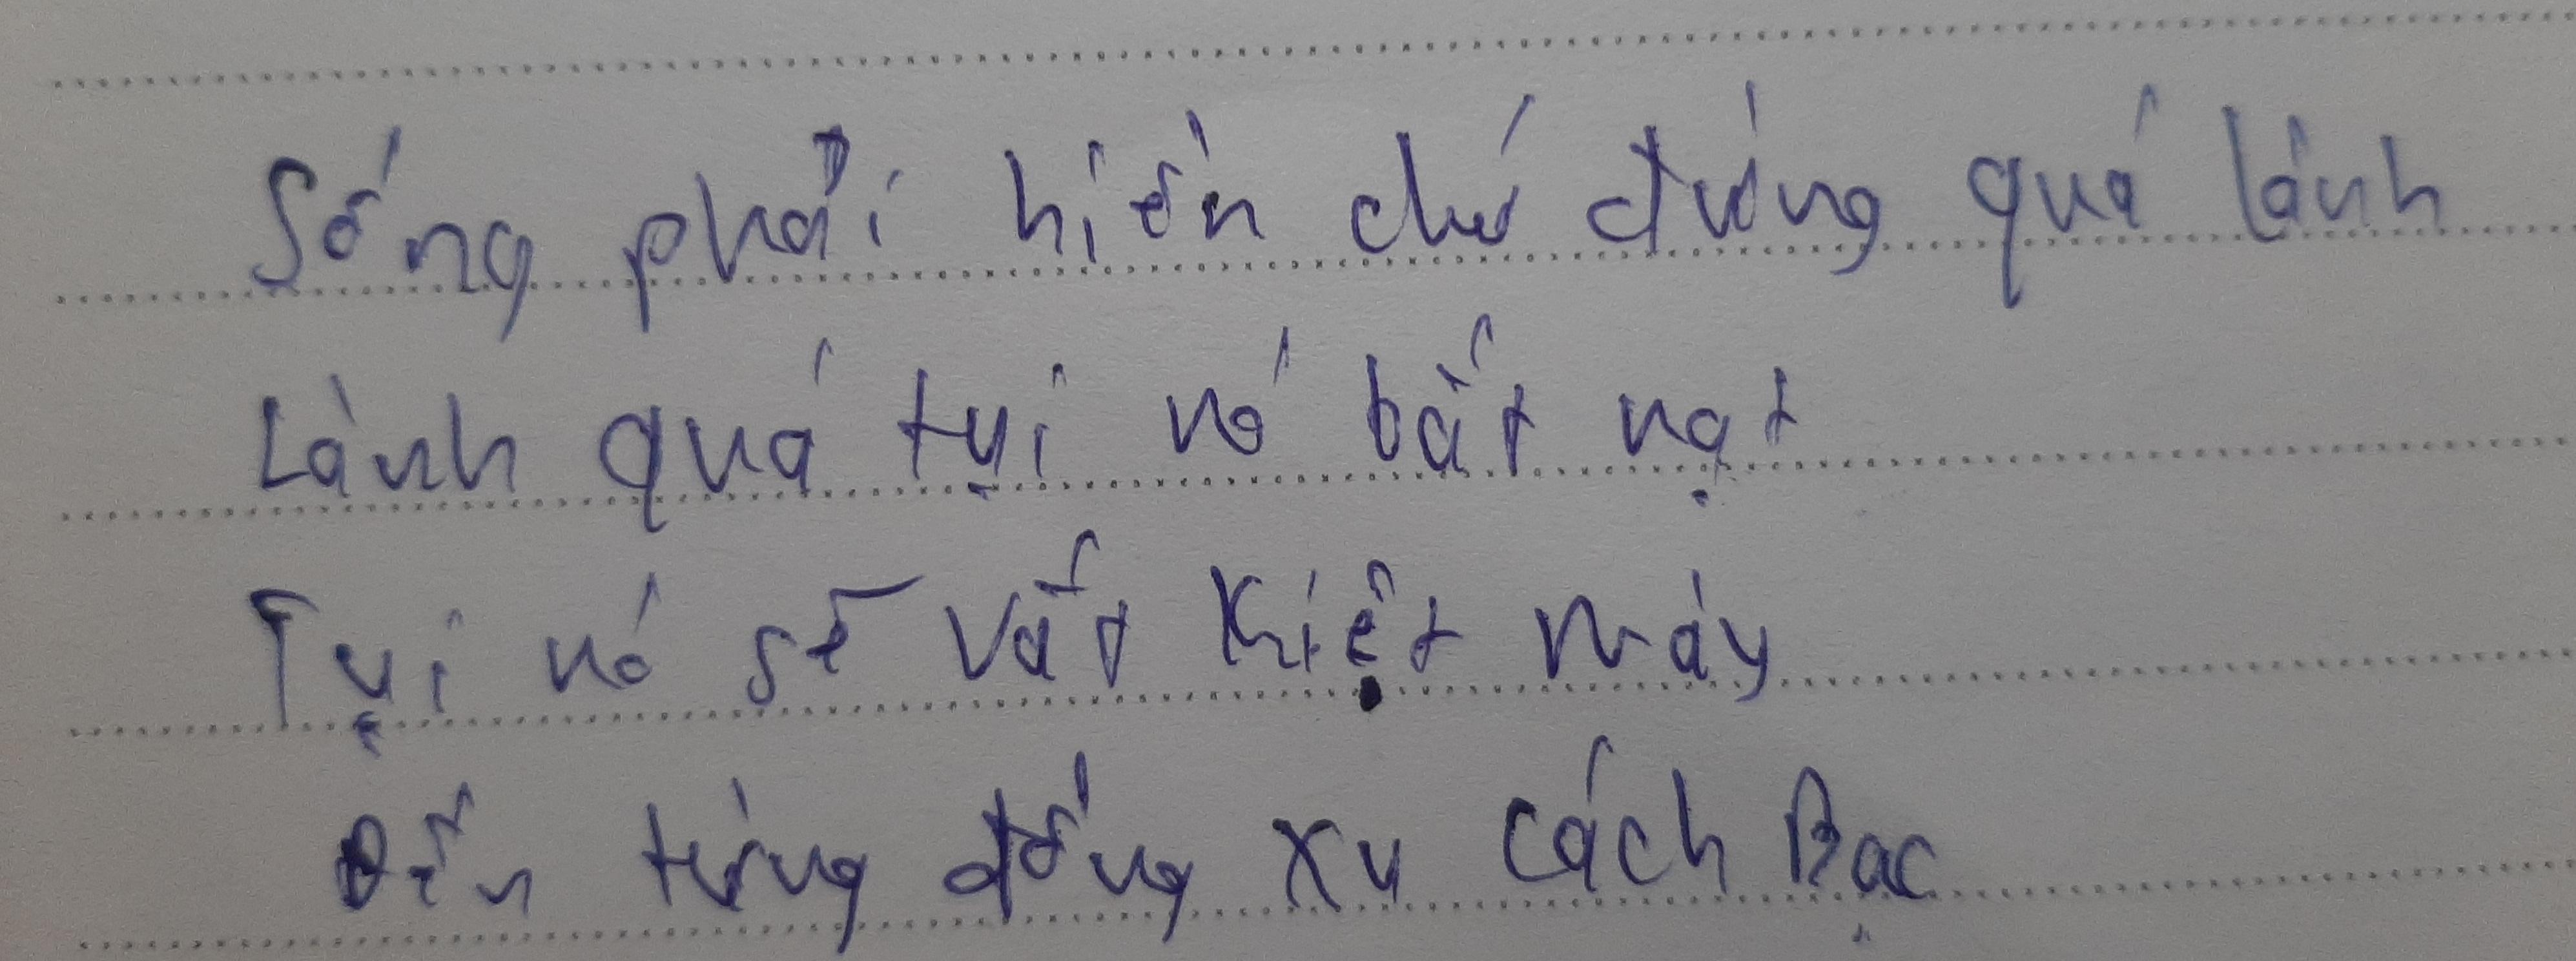 Sống phải hiền chứ đừng quá lành
Lành quá tụi nó bắt nạt
Tụi nó sẽ vắt kiệt mày
Đến từng đồng xu cách Bạc